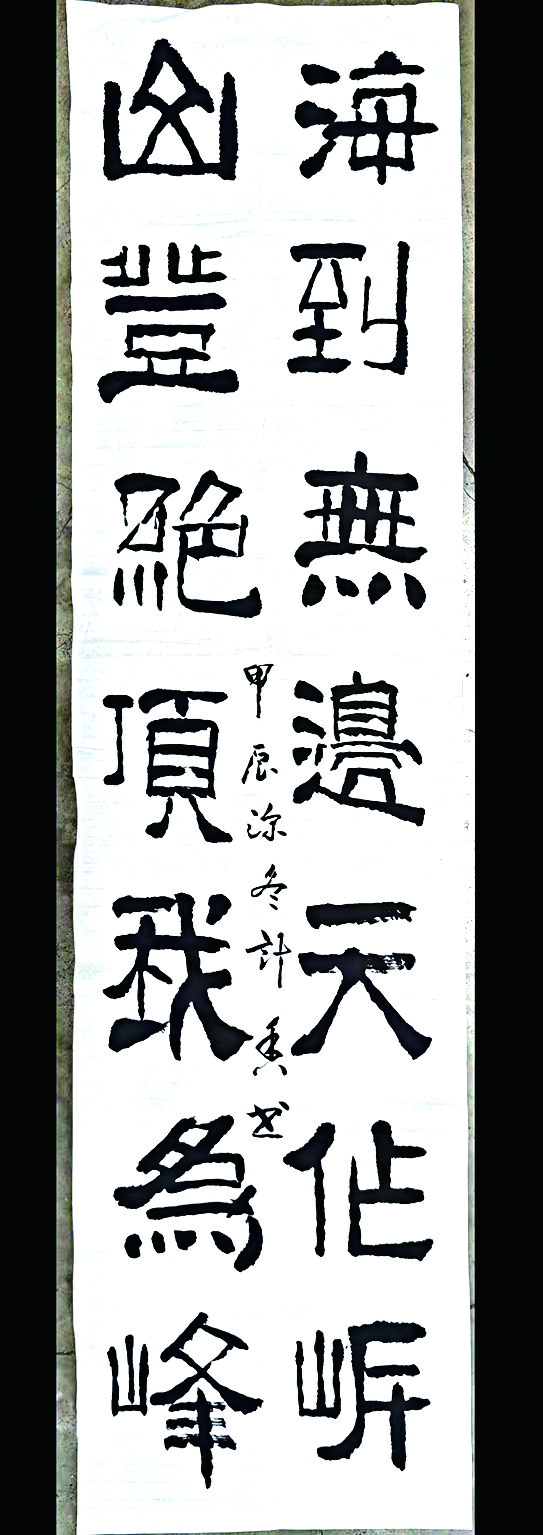 海到無邊天作岸
山登絕頂我為峰
甲辰深冬許秀書